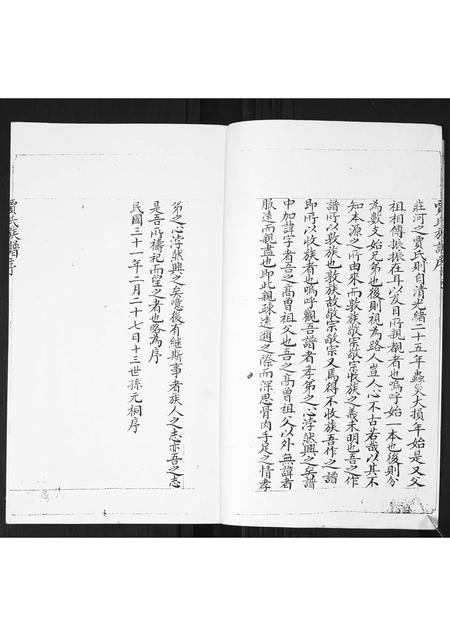 賈氏族譜序
莊河之賈氏則自清光緒二十五年蟲災大損年始是又父
祖相傳振振在耳以及目所親覩者也嗚呼始一本也後則分
為數支始兄弟也後則視為路人豈人心不古若哉以其不
知本源之所由來而敦族敬宗收族之義未明也吾之作
譜所以敦族也敦族故敬宗敬宗又焉得不收族吾作之譜
即所以收族者也嗚呼觀吾譜者孝弟之心浡然興之矣譜
中加諱字者吾之高曾祖父也吾之高曾祖父以外無諱者
服遠而親盡也即此親疎遠邇之際而深思骨肉手足之情孝
弟之心浡然興之矣意後有継斯事者族人之志亦吾之志
是吾所禱祀而望之者也略為序
民國三十一年二月二十七日十三世孫元桐序
賈氏族譜序